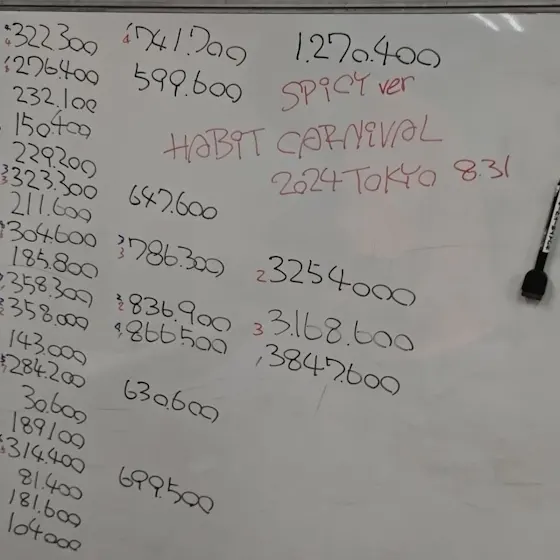 322300
276.400
232.100
150.400
229.200
323.300
211.600
304.600
185.800
358.300
358.000
143.000
284.200
30.600
189100
314.400
81.400
181.600
104000
741.700
599.600
647.600
786.300
836.900
866500
630.600
699.500
1.270.400
SPiCY ver
HABIT CARNiVAL
2024 TOKYO 8.31
2 3254000
3 3.168.600
3847.600